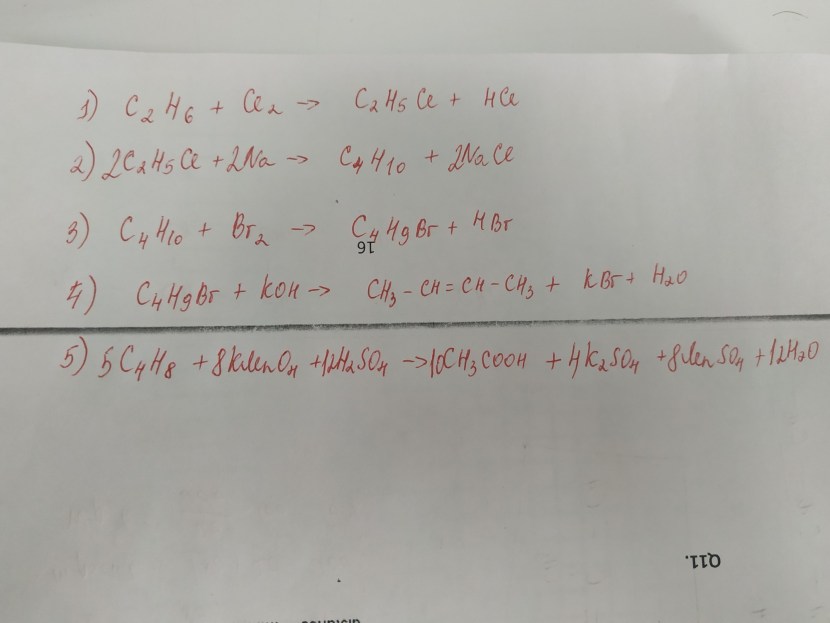 1) C₂H₆ + Cl₂ → C₂H₅Cl + HCl
2) 2C₂H₅Cl + 2Na → C₄H₁₀ + 2NaCl
3) C₄H₁₀ + Br₂ → C₄H₉Br + HBr
16
4) C₄H₉Br + KOH → CH₃ – CH = CH – CH₃ + KBr + H₂O
5) 5C₄H₈ + 8KMnO₄ + 12H₂SO₄ → 10CH₃COOH + 4K₂SO₄ + 8MnSO₄ + 12H₂O
Q11.